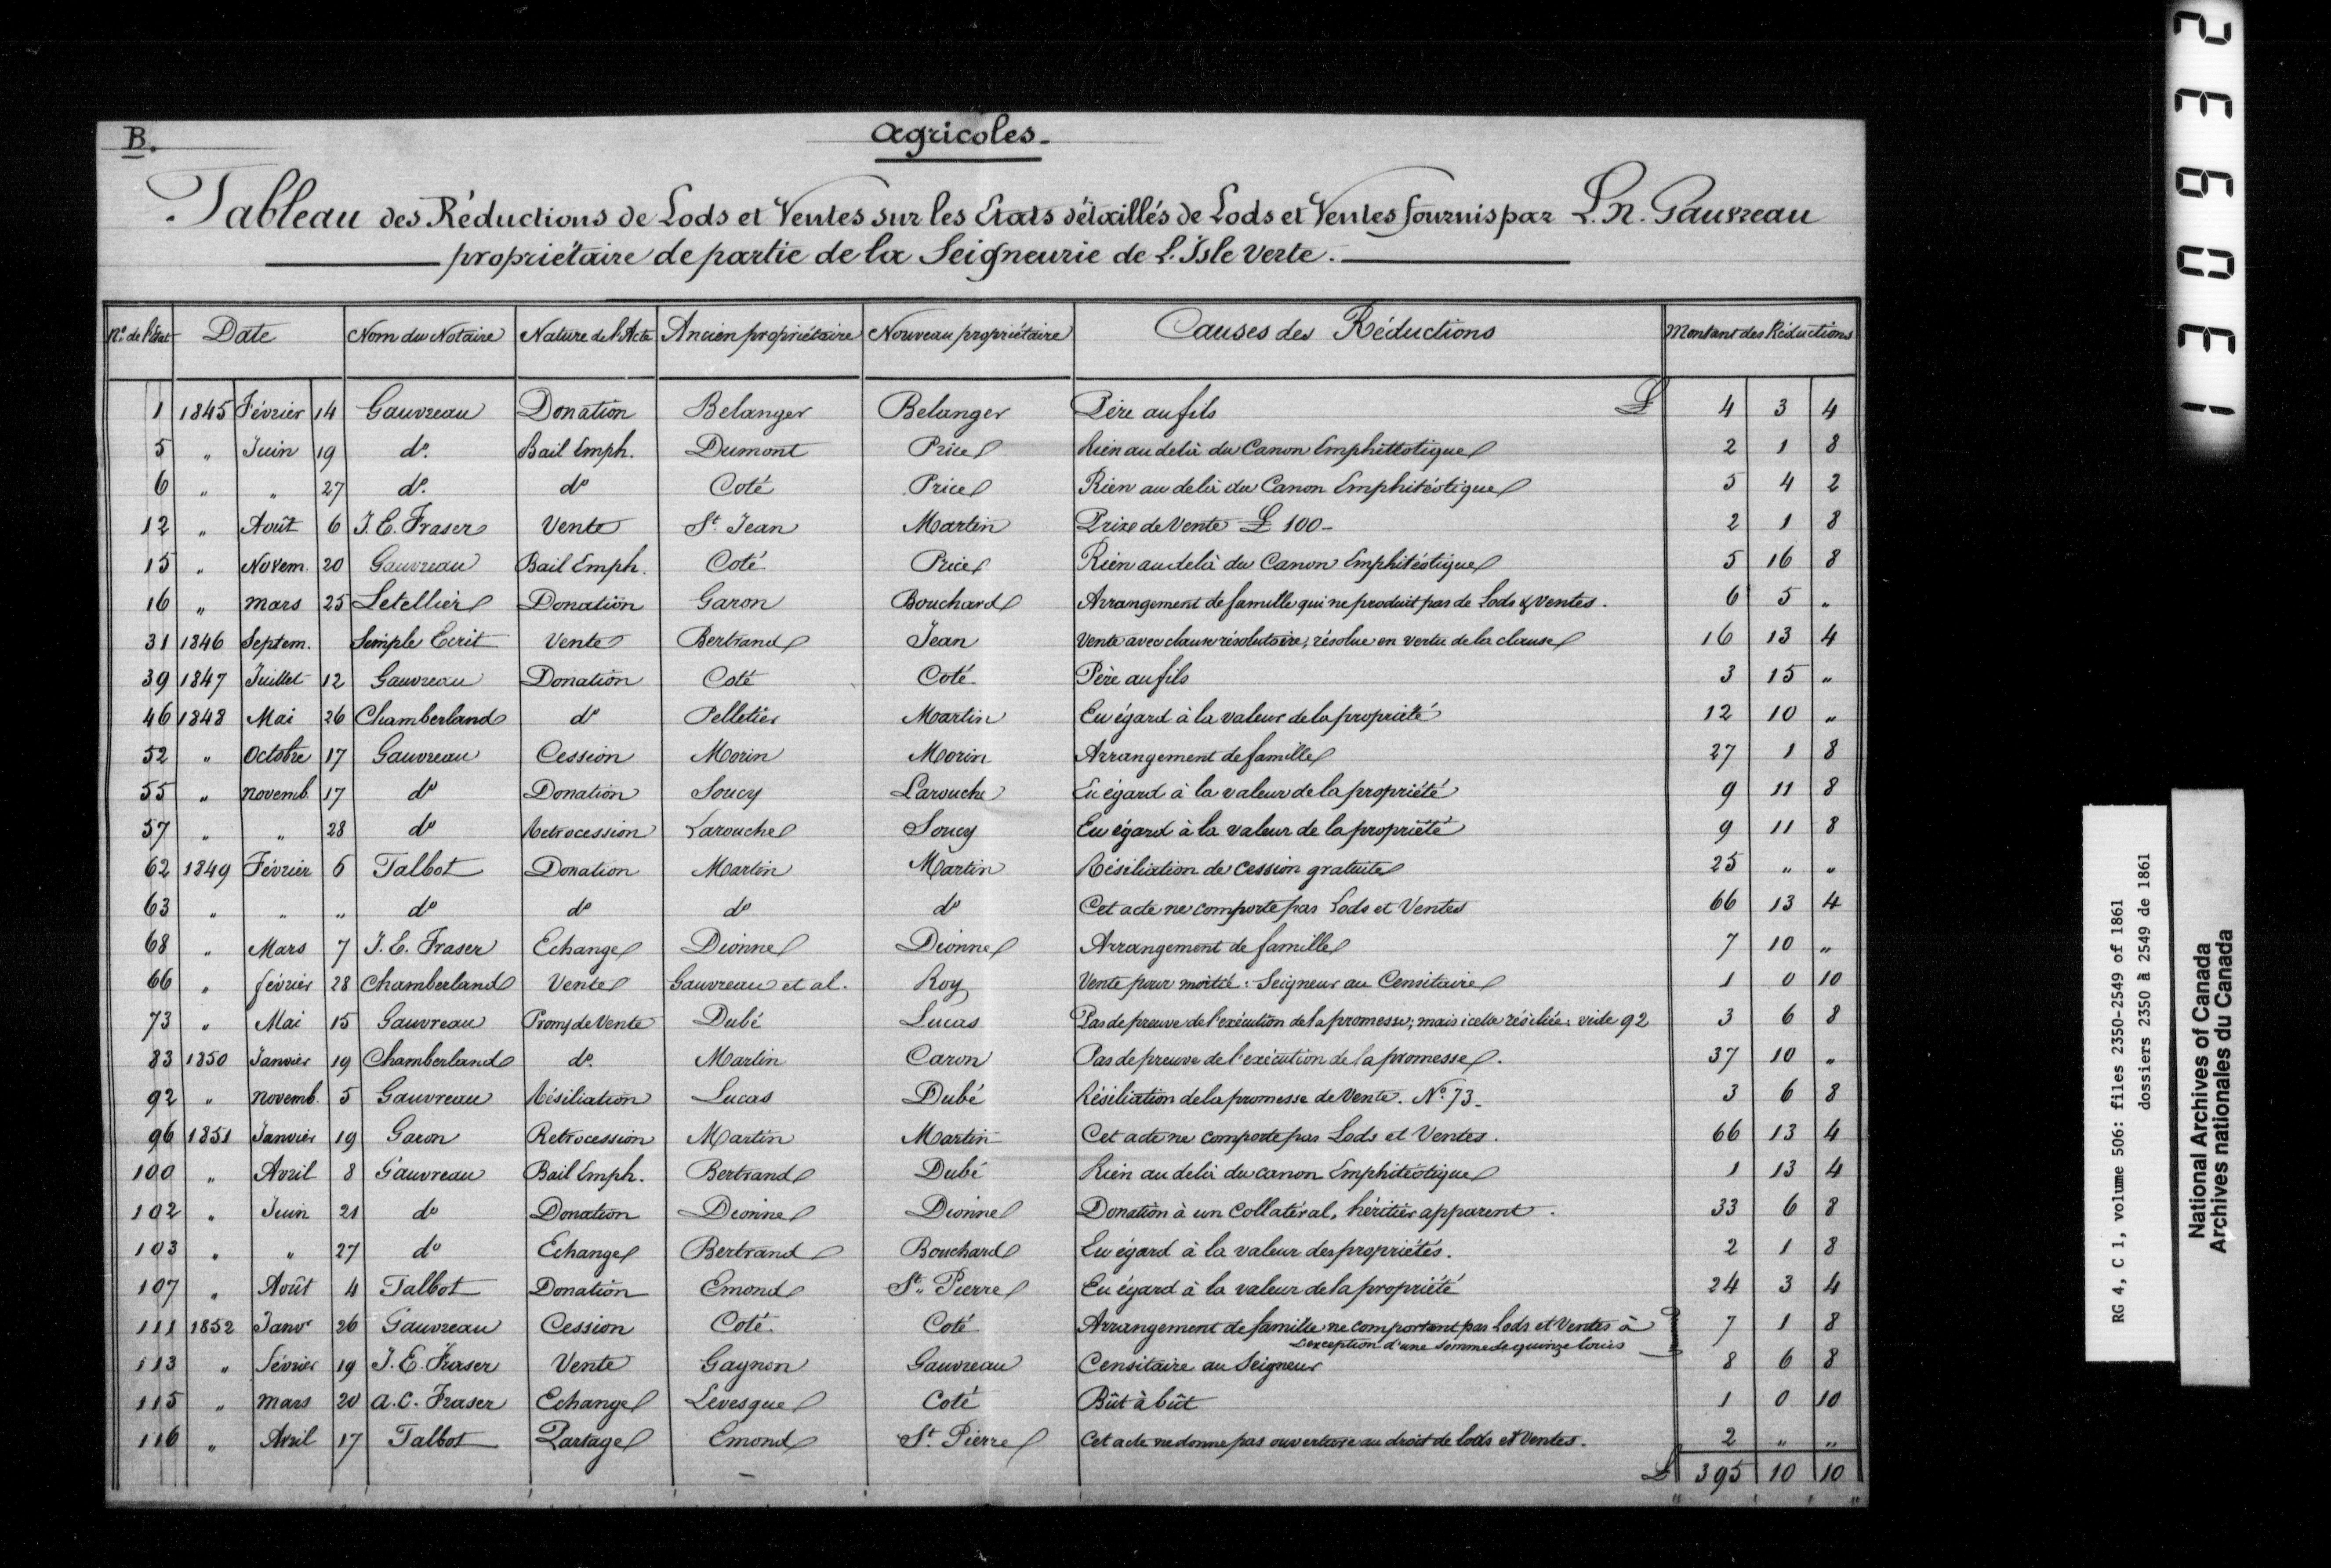 B.
Agricoles.
Tableau des Réductions de Lods et Ventes sur les Etats détaillés de Lods et Ventes fournis par L. N. Gauvreau
propriétaire de partie de la Seigneurie de L'Isle Verte.
No. de l'Etat Date Nom du Notaire Nature de l'Acte Ancien propriétaire Nouveau propriétaire Causes des Réductions Montant des Réductions
1 1845 Février 14 Gauvreau Donation Belanger Belanger Père au fils £ 4 3 4
5 " Juin 19 do. Bail Emph. Dumont Price Rien au delà du Canon Emphitéotique 2 1 8
6 " " 27 do. do Coté Price Rien au delà du Canon Emphitéotique 5 4 2
12 " Août 6 J. E. Fraser Vente St. Jean Martin Prix de Vente £ 100- 2 1 8
15 " Novem. 20 Gauvreau Bail Emph. Coté Price Rien au delà du Canon Emphitéotique 5 16 8
16 " Mars 25 Letellier Donation Garon Bouchard Arrangement de famille qui ne produit pas de Lods & Ventes. 6 5 "
31 1846 Septem. Simple Ecrit Vente Bertrand Jean Vente avec clause résolutoire, résolue en vertu de la clause 16 13 4
39 1847 Juillet 12 Gauvreau Donation Coté Coté Père au fils 3 15 "
46 1848 Mai 26 Chamberland do Pelletier Martin Eu égard à la valeur de la propriété 12 10 "
52 " Octobre 17 Gauvreau Cession Morin Morin Arrangement de famille 27 1 8
55 " novemb. 17 do Donation Soucy Larouche Eu égard à la valeur de la propriété 9 11 8
57 " " 28 do Retrocession Larouche Soucy Eu égard à la valeur de la propriété 9 11 8
62 1849 Février 6 Talbot Donation Martin Martin Résiliation de cession gratuite 25 " "
63 " " " do do do do Cet acte ne comporte pas Lods et Ventes 66 13 4
68 " Mars 7 J. E. Fraser Echange Dionne Dionne Arrangement de famille 7 10 "
66 " février 28 Chamberland Vente Gauvreau et al. Roy Vente pour moitié: Seigneur au Censitaire 1 0 10
73 " Mai 15 Gauvreau Prom. de Vente Dubé Lucas Pas de preuve de l'exécution de la promesse; mais icelle résiliée. vide 92 3 6 8
83 1850 Janvier 19 Chamberland do. Martin Caron Pas de preuve de l'exécution de la promesse. 37 10 "
92 " novemb. 5 Gauvreau Résiliation Lucas Dubé Résiliation de la promesse de Vente. No. 73- 3 6 8
96 1851 Janvier 19 Garon Retrocession Martin Martin Cet acte ne comporte pas Lods et Ventes. 66 13 4
100 " Avril 8 Gauvreau Bail Emph. Bertrand Dubé Rien au delà du canon Emphitéotique 1 13 4
102 " Juin 21 do Donation Dionne Dionne Donation à un Collatéral, héritier apparent. 33 6 8
103 " " 27 do Echange Bertrand Bouchard Eu égard à la valeur des propriétés. 2 1 8
107 " Août 4 Talbot Donation Emond St. Pierre Eu égard à la valeur de la propriété 24 3 4
111 1852 Janvr 26 Gauvreau Cession Coté Coté Arrangement de famille ne comportant pas Lods et Ventes à 7 1 8
L'exception d'une somme de quinze louis
113 " Février 19 J. E. Fraser Vente Gagnon Gauvreau Censitaire au Seigneur 8 6 8
115 " Mars 20 A. C. Fraser Echange Levesque Coté Bût à bût 1 0 10
116 " Avril 17 Talbot Partage Emond St. Pierre Cet acte ne donne pas ouverture au droit de Lods et Ventes. 2 " "
£ 395 10 10
130932
RG 4, C 1, volume 506: files 2350-2549 of 1861
dossiers 2350 à 2549 de 1861
National Archives of Canada
Archives nationales du Canada